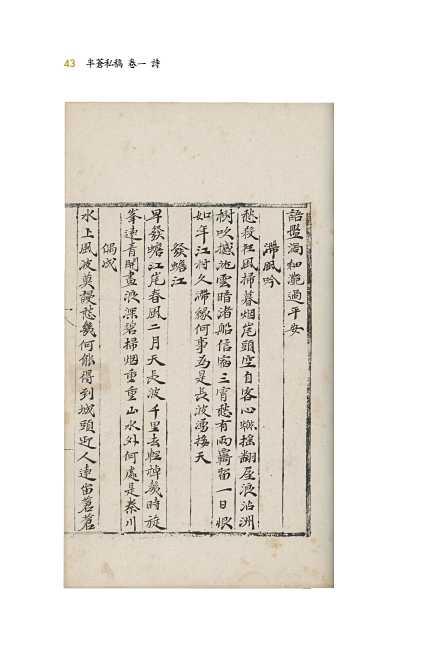 43 半蒼私稿 卷一 詩
過平安
滯風吟
愁殺狂風掃暮烟岸頭空自客心懸搖翻屋浪沾洲
樹吹撼池雲暗渚船信宿三宵愁有兩羇留一日恨
如年江村久滯緣何事爲是長波湧接天
發蟾江
早發蟾江岸春風二月天長波千里去輕棹幾時旋
峯遠青開畫浪深碧掃烟重重山水外何處是秦川
偶成
水上風波莫謾愁幾何能得到城頭近人連宙蒼蒼